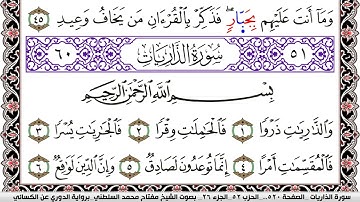 وَمَآ أَنتَ عَلَيْهِم بِجَبَّارٍ ۖ فَذَكِّرْ بِالْقُرْءَانِ مَن يَخَافُ وَعِيدِ ٤٥
٥١ سُورَةُ الذَّارِيَاتِ ٦٠
بِسْمِ اللَّهِ الرَّحْمَٰنِ الرَّحِيمِ
وَالذَّٰرِيَٰتِ ذَرْوًا ١ فَالْحَٰمِلَٰتِ وِقْرًا ٢ فَالْجَٰرِيَٰتِ يُسْرًا ٣
فَالْمُقَسِّمَٰتِ أَمْرًا ٤ إِنَّمَا تُوعَدُونَ لَصَادِقٌ ٥ وَإِنَّ الدِّينَ لَوَٰقِعٌ ٦
سورة الذاريات _ الصفحة ٥٢٠ ... الحزب ٥٢ الجزء ٢٦ _ بصوت الشيخ مفتاح محمد السلطني _ برواية الدوري عن الكسائي